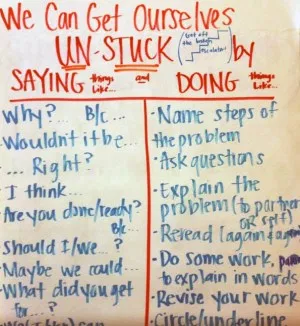 We Can Get Ourselves
UN-STUCK (Get off the broken escalator!) by
SAYING things Like... and DOING things Like...
Why?... B/c...
-Wouldn't it be...
... Right?
-I think...
-Are you done/ready?
B/c
-Should I/we...?
-Maybe we could...
-What did you get
for...?
-Name steps of
the problem
-Ask questions
-Explain the
problem (to partner
OR self)
-Reread (again & again
-Do some work,
to explain in words
-Revise your work
-Circle/underline